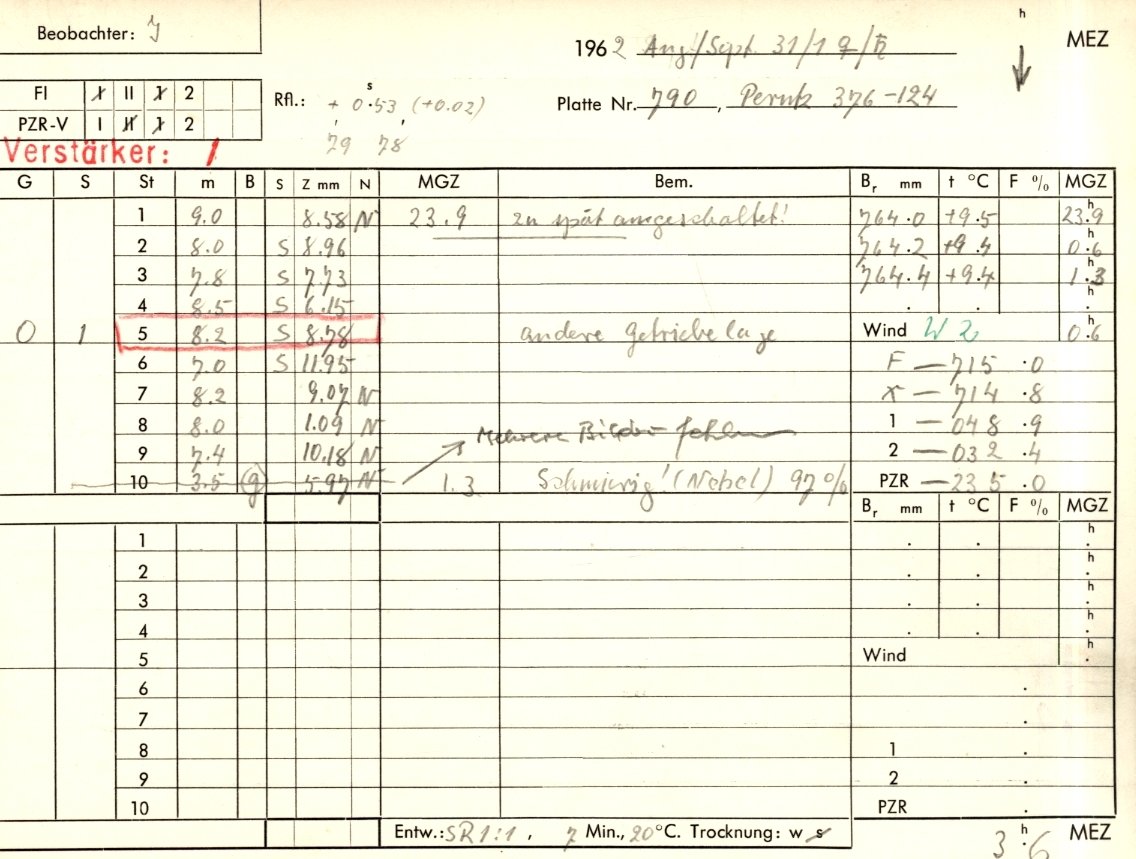 Beobachter: J
h
1962 Aug/Sept. 31/1 ♀/♄ MEZ
FI I II 1 2
Rfl.: + 0.ˢ53 (+0.02)
Platte Nr. 790, Perutz 376-124
PZR-V I II 1 2
79 78
Verstärker: 1
G S St m B S Z mm N MGZ Bem. Br mm t °C F % MGZ
1 9.0 8.58 N 23.9 zu spät ausgeschaltet! 764.0 +9.5 23.ʰ9
2 8.0 S 8.96 764.2 +9.4 0.ʰ6
3 7.8 S 7.73 764.4 +9.4 1.ʰ3
4 8.5 S 6.15 . . ʰ.
0 1 5 8.2 S 8.78 andere Getriebelage Wind W 2 0.ʰ6
6 7.0 S 11.95 F — 715 .0
7 8.2 9.07 N x — 714 .8
8 8.0 1.09 N Mehrere Bilder fehlen 1 — 048 .9
9 7.4 10.18 N 2 — 032 .4
10 3.5 (g) 5.97 N 1.3 Schmierig! (Nebel) 97% PZR — 235 .0
Br mm t °C F % MGZ
1 . . ʰ.
2 . . ʰ.
3 . . ʰ.
4 . . ʰ.
5 Wind ʰ.
6 .
7 .
8 1 .
9 2 .
10 PZR .
Entw.: SR 1:1, 7 Min., 20°C. Trocknung: w s 3.ʰ6 MEZ